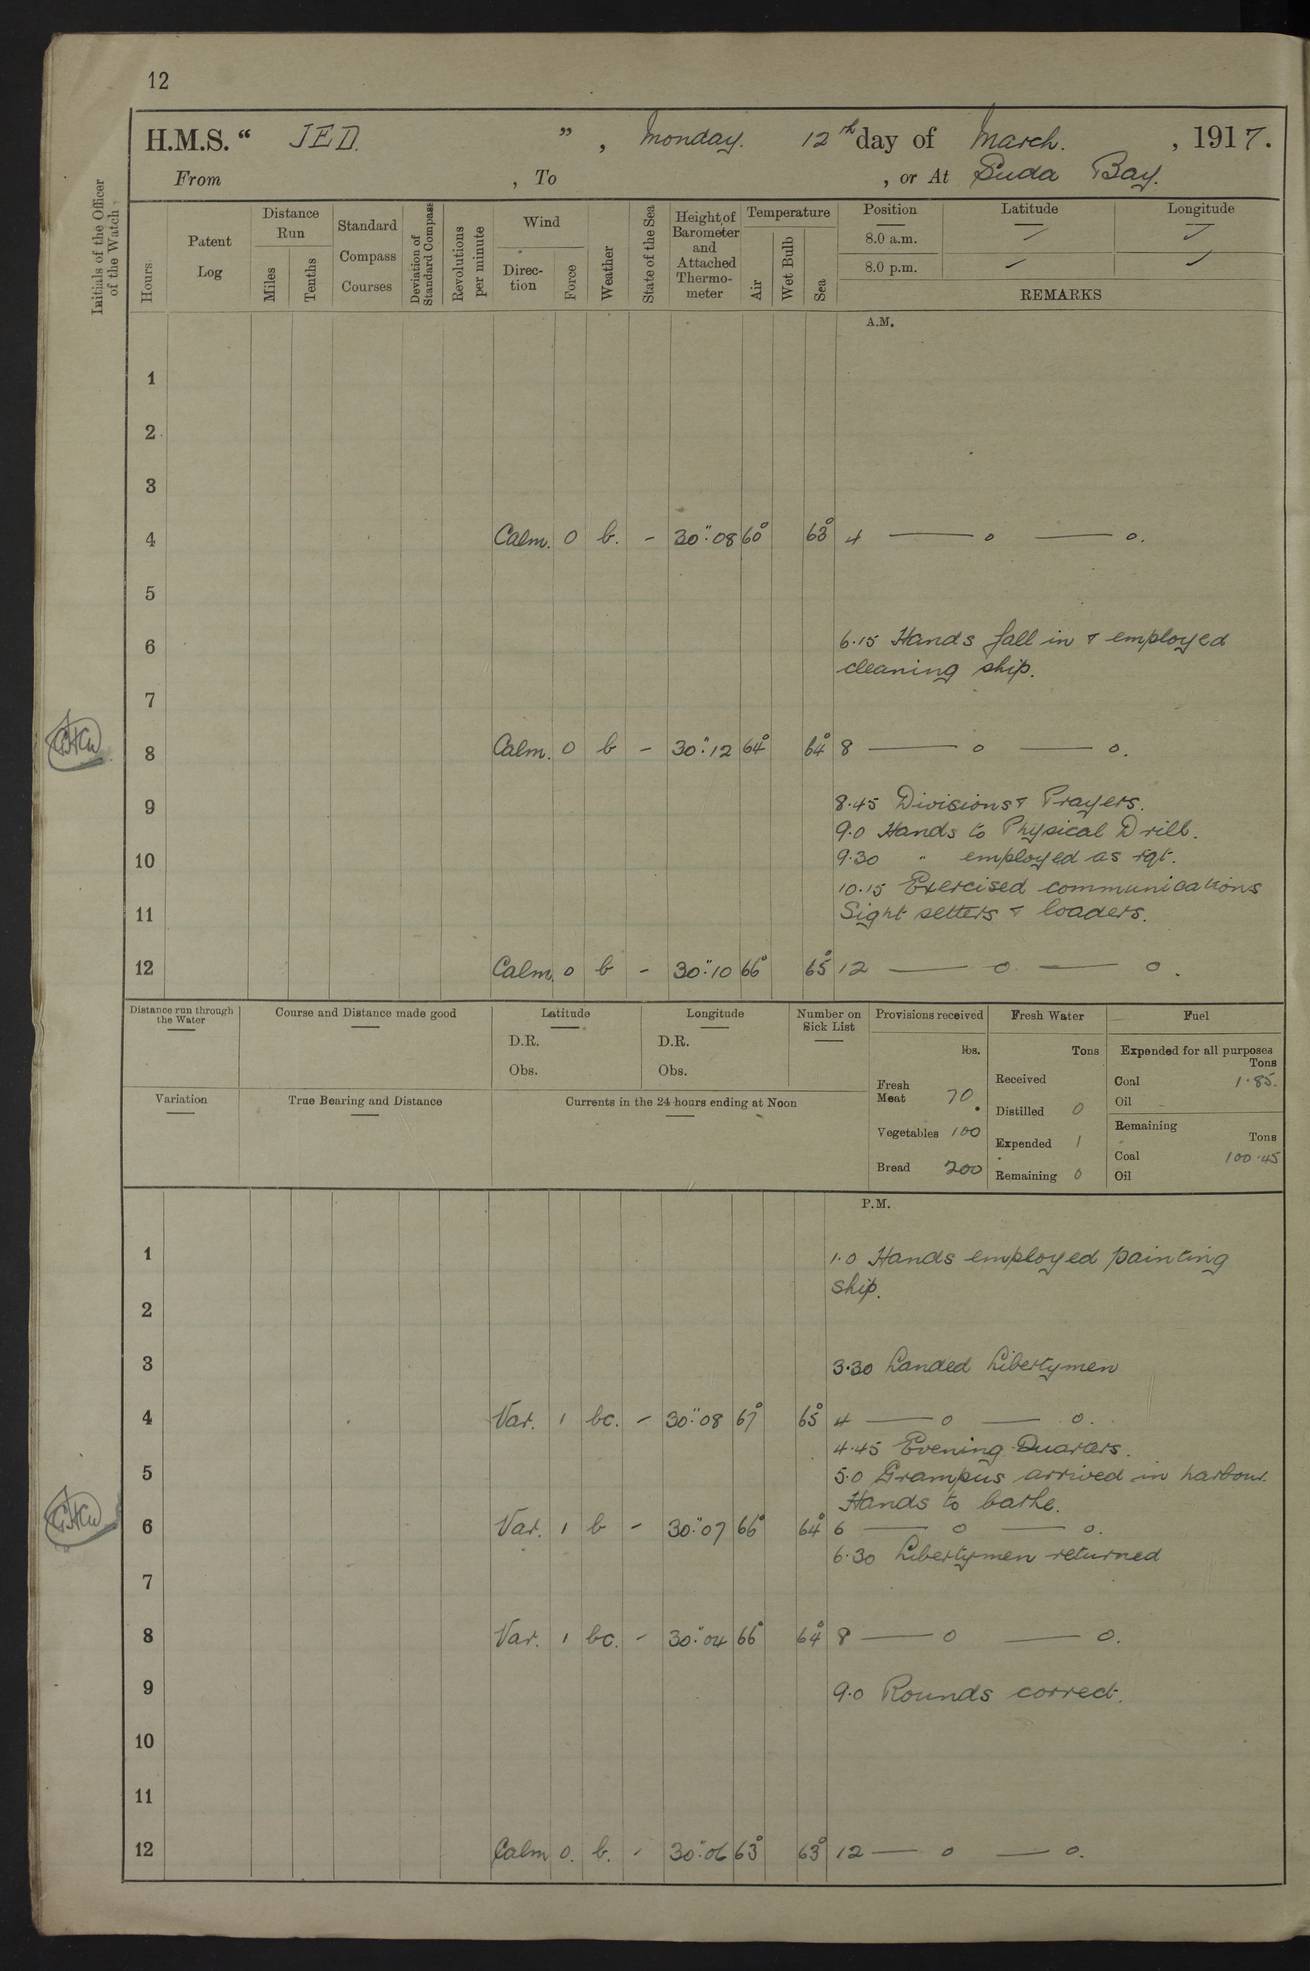 12
H.M.S. “ JED. ” , Monday. 12th day of March. , 1917.
From , To , or At Suda Bay.
Initials of the Officer of the Watch
Hours
Patent Log
Distance Run
Miles
Tenths
Standard Compass Courses
Deviation of Standard Compass
Revolutions per minute
Wind
Direc-tion
Force
Weather
State of the Sea
Height of Barometer and Attached Thermo-meter
Temperature
Air
Wet Bulb
Sea
Position Latitude Longitude
8.0 a.m. ✓ ✓
8.0 p.m. ✓ ✓
REMARKS
A.M.
1
2
3
4 Calm. 0 b. - 30".08 60° 63° 4 —— o —— o.
5
6 6.15 Hands fall in & employed
cleaning ship.
7
8 Calm. 0 b - 30".12 64° 64° 8 —— o —— o.
9 8.45 Divisions & Prayers.
9.0 Hands to Physical Drill.
10 9.30 " employed as rqt.
10.15 Exercised communications
11 Sight setters & loaders.
12 Calm. 0 b - 30".10 66° 65° 12 —— o —— o.
Distance run through the Water
Course and Distance made good
Latitude
D.R.
Obs.
Longitude
D.R.
Obs.
Number on Sick List
Variation
True Bearing and Distance
Currents in the 24 hours ending at Noon
Provisions received
lbs.
Fresh Meat 70
Vegetables 100
Bread 200
Fresh Water
Tons
Received
Distilled 0
Expended 1
Remaining 0
Fuel
Expended for all purposes
Tons
Coal 1.85.
Oil
Remaining
Tons
Coal 100.45
Oil
P.M.
1 1.0 Hands employed painting
ship.
2
3 3.30 Landed Libertymen
4 Var. 1 bc. - 30".08 67° 65° 4 —— o —— o.
4.45 Evening Quarters.
5 5.0 Grampus arrived in harbour.
Hands to bathe.
6 Var. 1 b - 30".07 66° 64° 6 —— o —— o.
6.30 Libertymen returned
7
8 Var. 1 bc. - 30".04 66° 64° 8 —— o —— o.
9 9.0 Rounds correct.
10
11
12 Calm 0. b. - 30".06 63° 63° 12 —— o —— o.